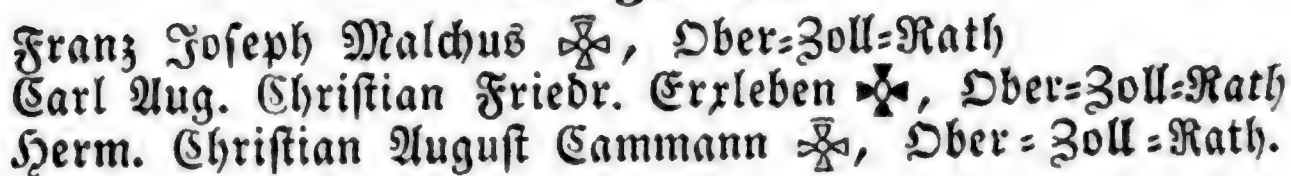 Franz Joseph Malchus ✠, Ober-Zoll-Rath
Carl Aug. Christian Friedr. Erxleben ✠, Ober-Zoll-Rath
Herm. Christian August Cammann ✠, Ober-Zoll-Rath.